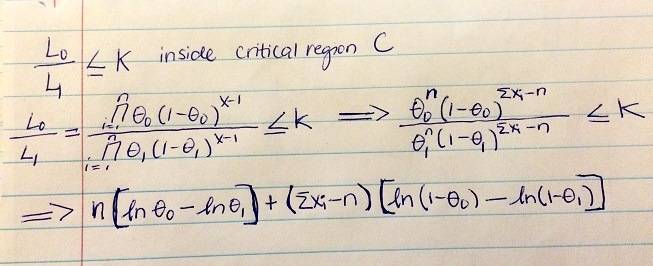 L₀/L₁ ≤ K inside critical region C
L₀/L₁ = ∏ᵢ₌₁ⁿ θ₀(1-θ₀)ˣ⁻¹ / ∏ᵢ₌₁ⁿ θ₁(1-θ₁)ˣ⁻¹ ≤ K ⟹ θ₀ⁿ(1-θ₀)^(Σxᵢ-n) / θ₁ⁿ(1-θ₁)^(Σxᵢ-n) ≤ K
⟹ n[ln θ₀ - ln θ₁] + (Σxᵢ-n)[ln(1-θ₀) - ln(1-θ₁)]